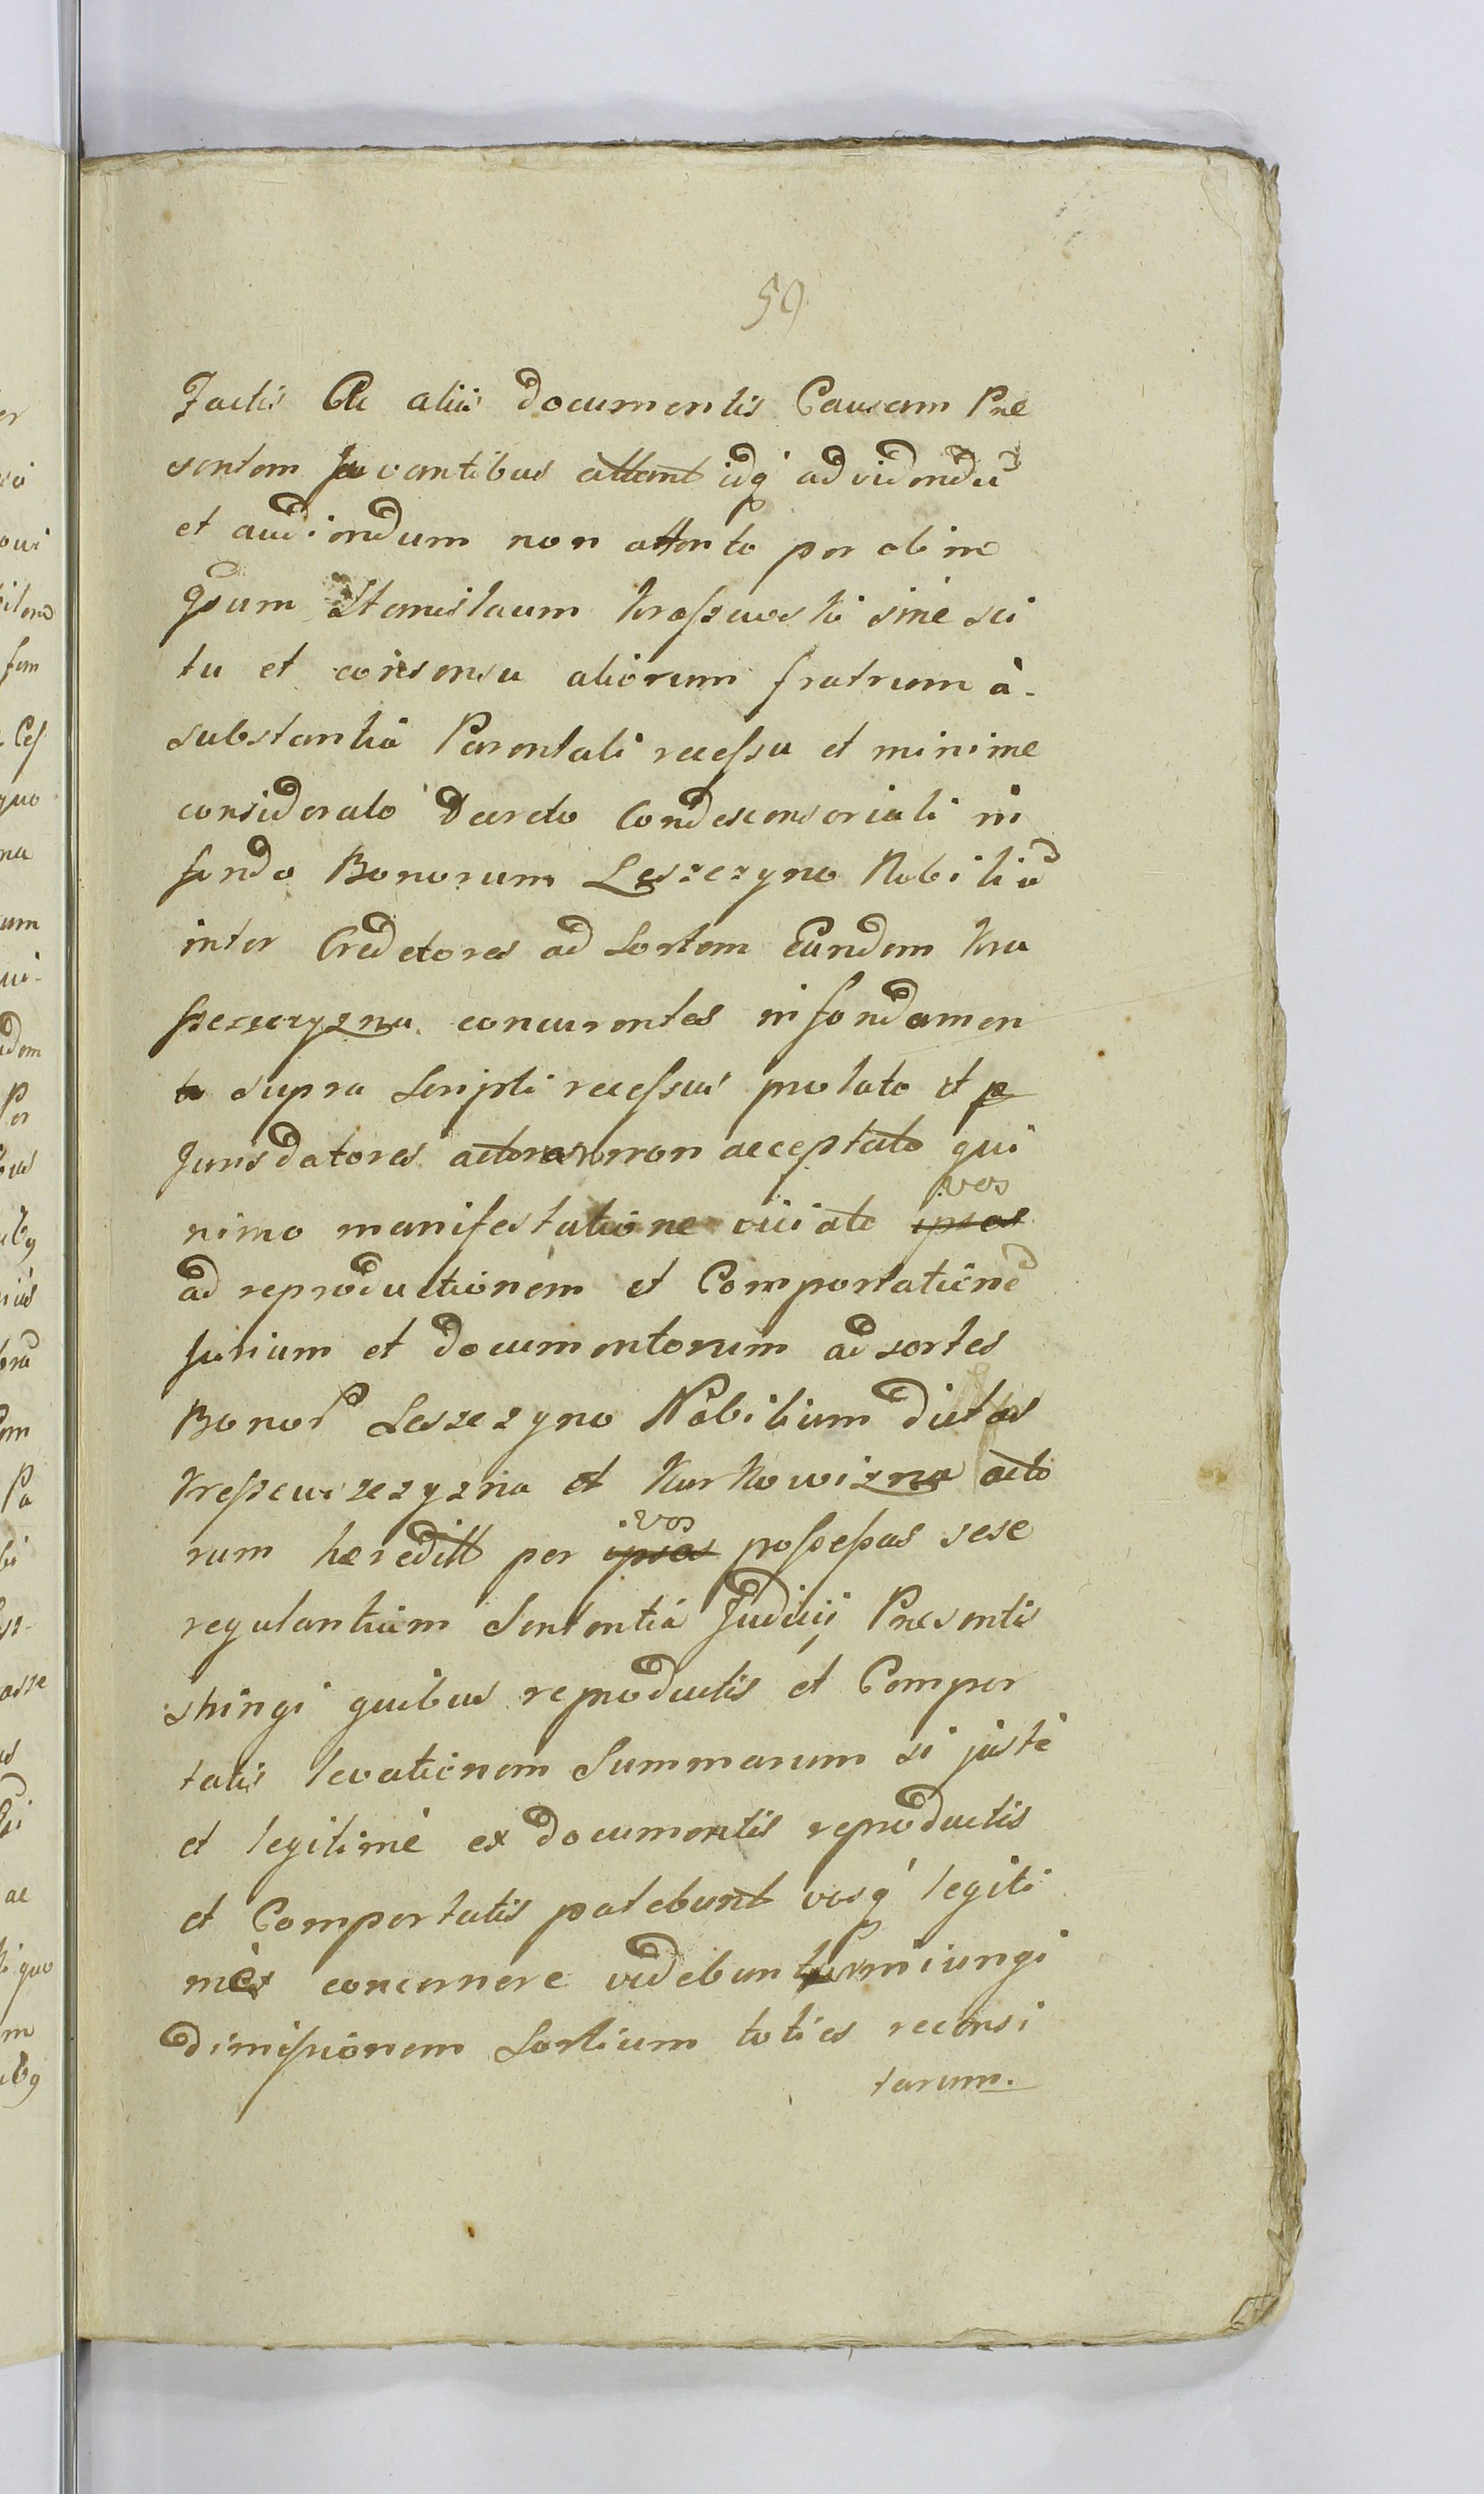 59
Factis Ac aliis documentis Causam Præ
sentem Juvantibus attent idq' ad videndu
et audiendum non attento per olim
Gsum Stanislaum Kraszewski sine sci
tu et consensu aliorum fratrum à
substantia Parentali recessu et minime
considerato Decreto Condescensoriali in
fundo Bonorum Leszczyno Nobiliu
inter Creditores ad Sortem Eandem Kra
szewczyzna concurentes in fundamen
to supra Scripti recessus prolato et p
Jurisdatores actores non acceptato qui
nimo manifestatione viciato ipsos vos
ad reproductionem et Comportatione
Jurium et documentorum ad sortes
Bonor Leszczyno Nobilium dictas
Kraszewszczyzna et Kurkowizna acto
rum hæreditt per ipsos vos possessas sese
regulantium Sententia Judicij Præsentis
stringi quibus reproductis et Compor
tatis levationem Summarum si justè
et legitimè ex documentis reproductis
et Comportatis patebunt vosq' legiti
mè concernere videbuntur iniungi
dimissionem Sortium toties recensi
tarum.
er
oui
fem
Ces
quo
na
um
dem
Po
er
bus
Pa
osse
ae
quo
m